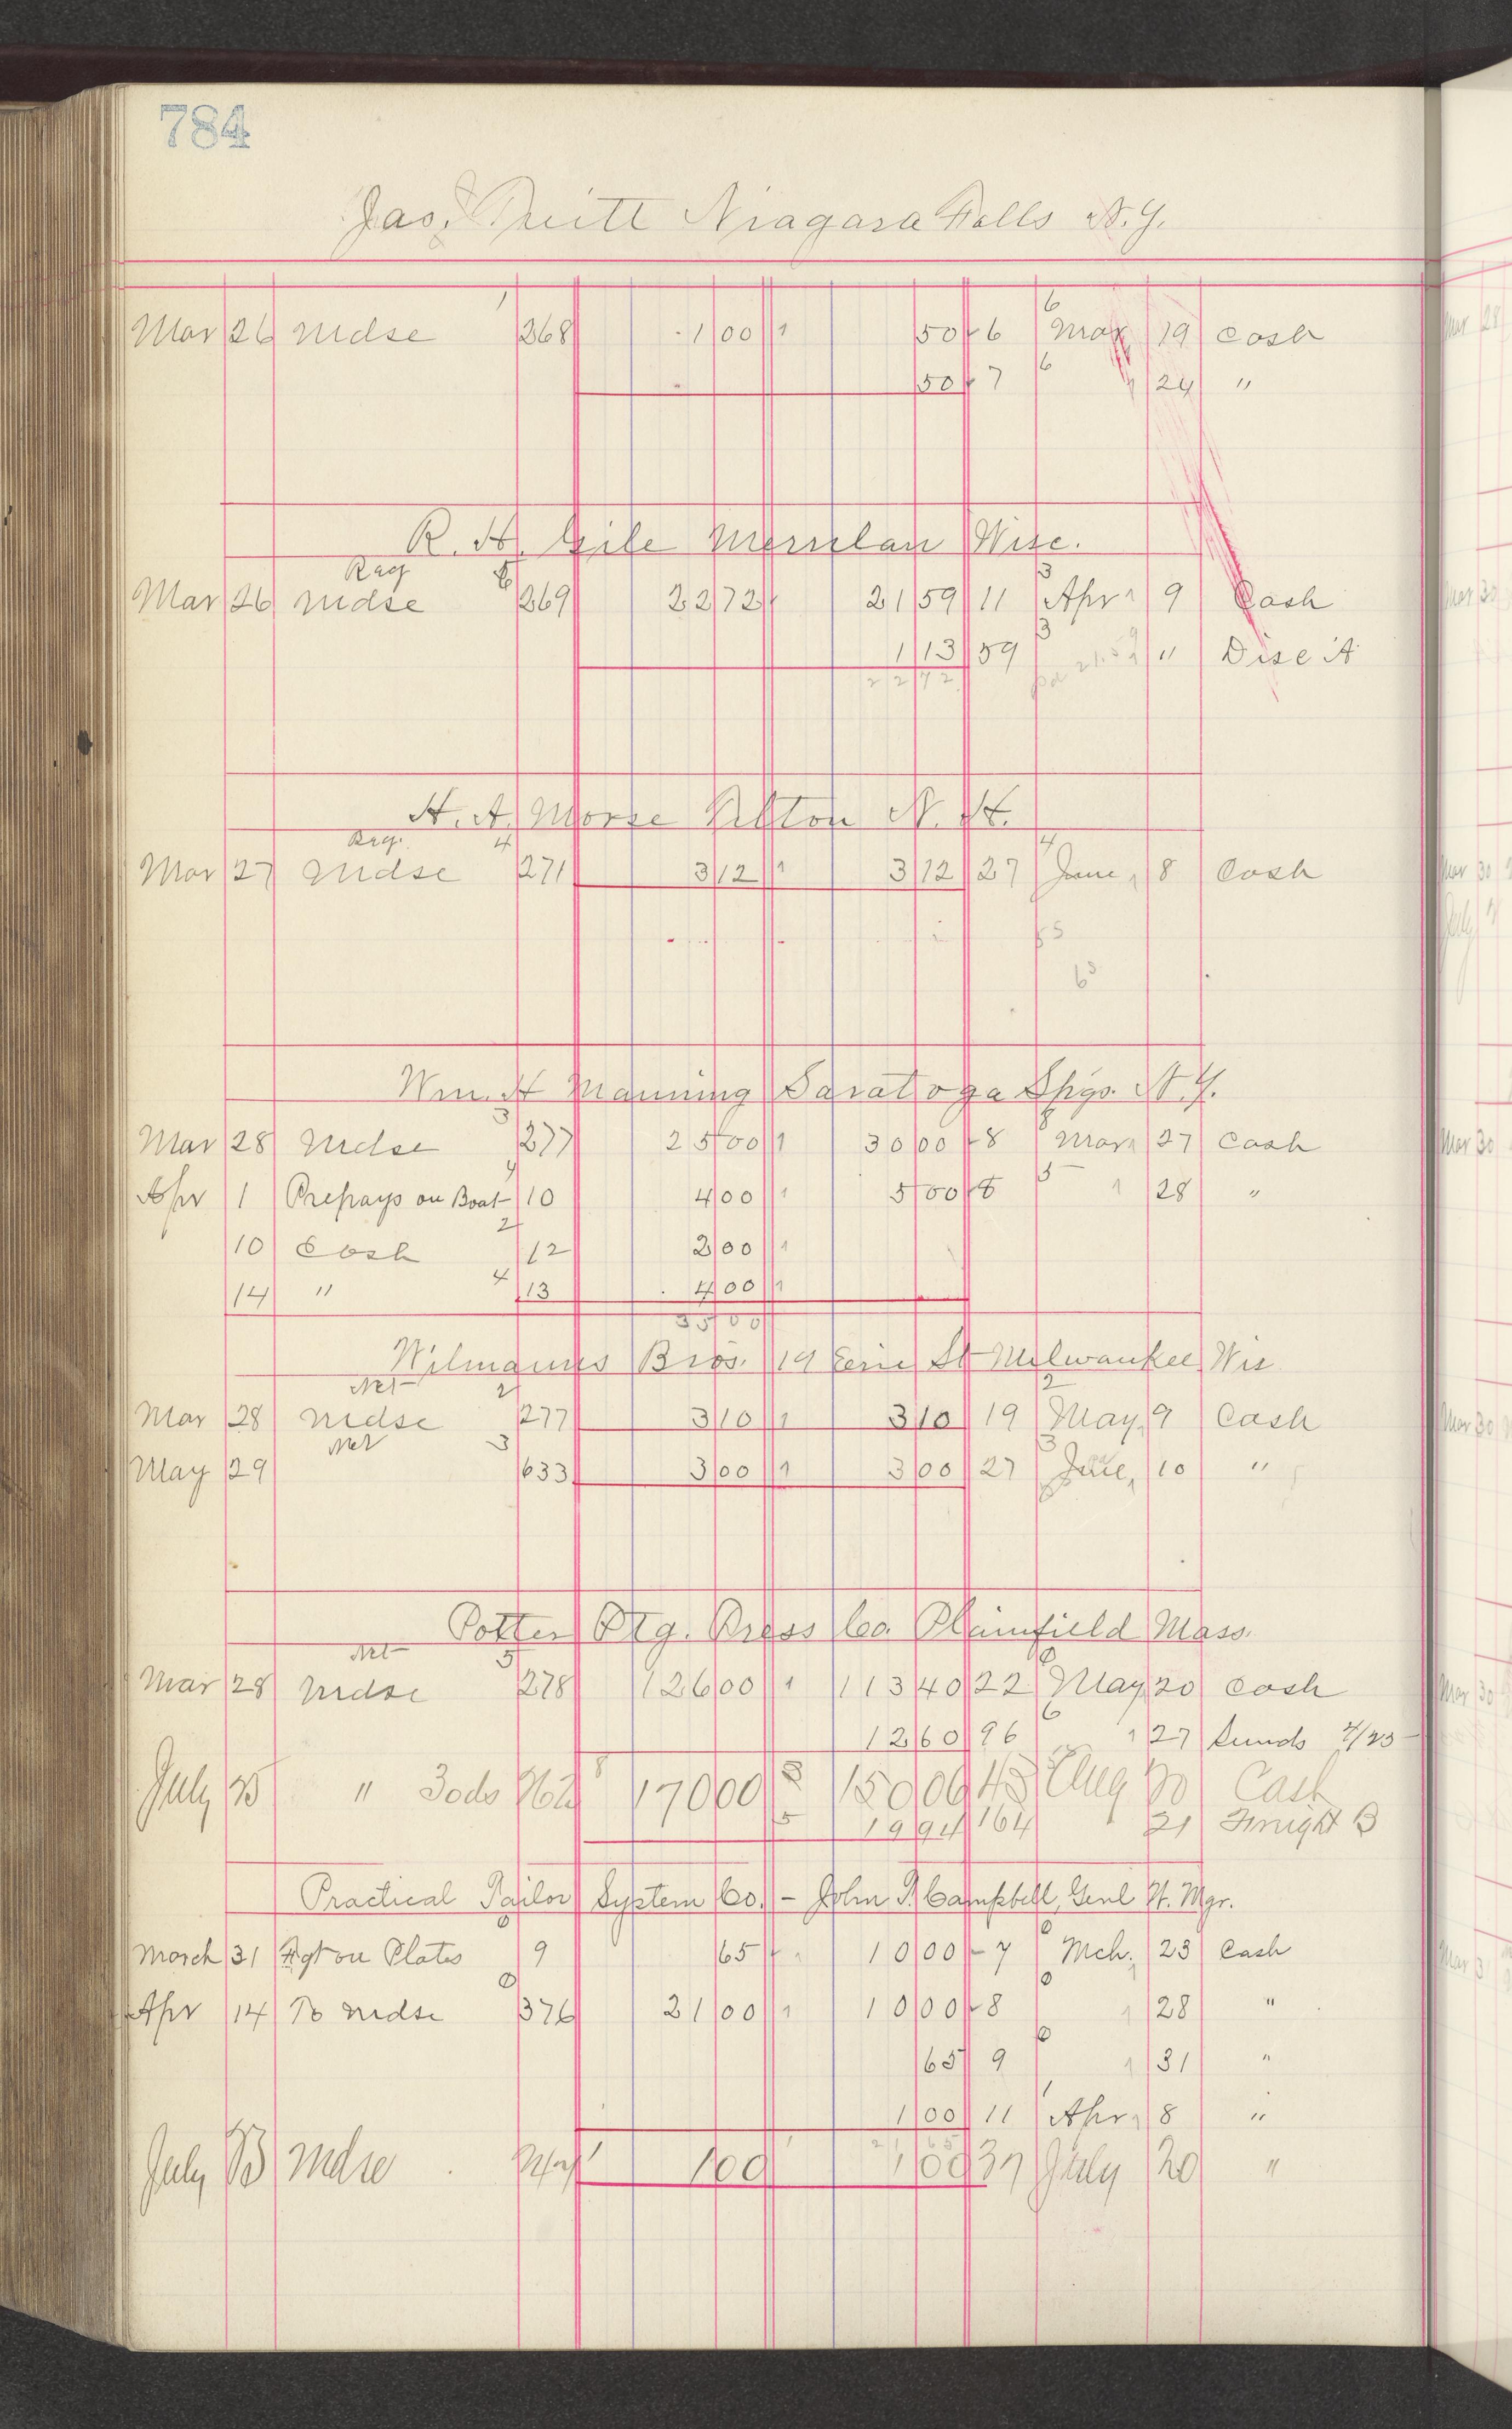 784
Jas. Niagara Falls N.Y.
Mar 26 mdse 268 1 00 50 6 Mar 19 Cash
50 7 " 24 "
R. H. Gile Merrilan Wisc.
Reg
Mar 26 mdse 269 22 72 21 59 11 Apr 9 Cash
1 13 59 " Disc A
22 72
H. A. Morse N. H.
Reg.
Mar 27 mdse 271 3 12 3 12 27 June 8 Cash
Wm. H Manning Saratoga Spgs. N.Y.
Mar 28 mdse 277 25 00 30 00 8 Mar 27 Cash
Apr 1 Prepays on Boat 10 4 00 5 00 8 28 "
10 Cash 12 2 00
14 " 13 4 00
35 00
Wilmanns Bros. 19 Erie St Milwaukee Wis
Net
Mar 28 mdse 277 3 10 3 10 19 May 9 Cash
Net
May 29 633 3 00 3 00 27 June 10 "
Potter Ptg. Press Co. Plainfield Mass.
Net
Mar 28 mdse 278 126 00 113 40 22 May 20 Cash
12 60 96 27 Sunds
July " 170 00 150 06 Aug Cash
19 94 164 21 B
Practical Tailor System Co. - John Campbell, Genl W. Mgr.
March 31 on Plates 9 65 10 00 7 Mch. 23 Cash
Apr 14 To mdse 376 21 00 10 00 8 28 "
65 9 31 "
1 00 11 Apr 8 "
July mdse 1 00 1 00 37 July 20 "